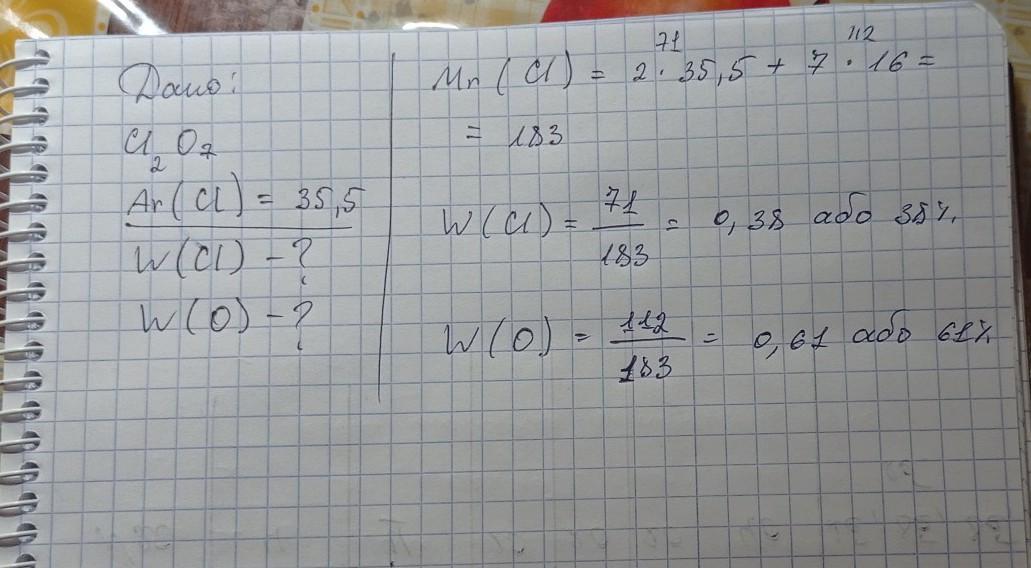 Дано:
Cl₂O₇
Ar(Cl) = 35,5
W(Cl) - ?
W(O) - ?
71 112
Mr(Cl) = 2 · 35,5 + 7 · 16 =
= 183
W(Cl) = 71/183 = 0,38 або 38%
W(O) = 112/183 = 0,61 або 61%